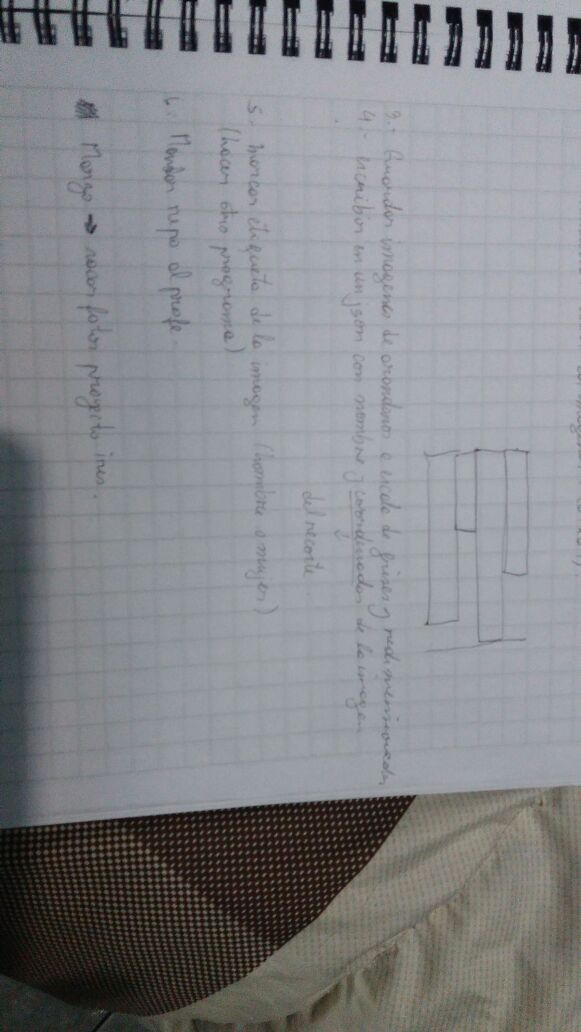 3.- Guardar imagenes de arandanos a escala de grises y redimensionadas
4.- escribir en un json con nombre y coordenadas de la imagen
del recorte
5.- marcar etiqueta de la imagen (hombre o mujer)
(hacer otro programa)
6. Mandar repo al profe.
Marzo → sacar fotos proyecto iris.